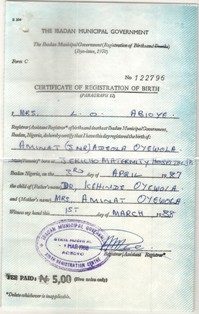 THE IBADAN MUNICIPAL GOVERNMENT
The Ibadan Municipal Government (Registration of Births and Deaths)
Form C
No 122796
CERTIFICATE OF REGISTRATION OF BIRTH
(PARAGRAPH 12)
I, MRS. L. O. ABIOYE
Registrar/Assistant Registrar* of Births and Deaths at Ibadan Municipal Government,
Ibadan, Nigeria, do hereby certify that I have this day registered the birth of
AMINAT OYEWOLA
JERICHO MATERNITY HOSPITAL
Ibadan Nigeria, on the 2RD day of APRIL 1987
the child of (Father's Name)
DR. KEHINDE OYEWOLA
and (Mother's name) MRS AMINAT OYEWOLA
Witness my hand this
1ST day of MARCH 1988
IBADAN MUNICIPAL GOVERNMENT
1 MAR 1988
BIRTH REGISTRATION CENTRE
Registrar/Assistant Registrar*
FEE PAID: ₦ 5.00 (Five naira only)
*Delete whichever is inapplicable.